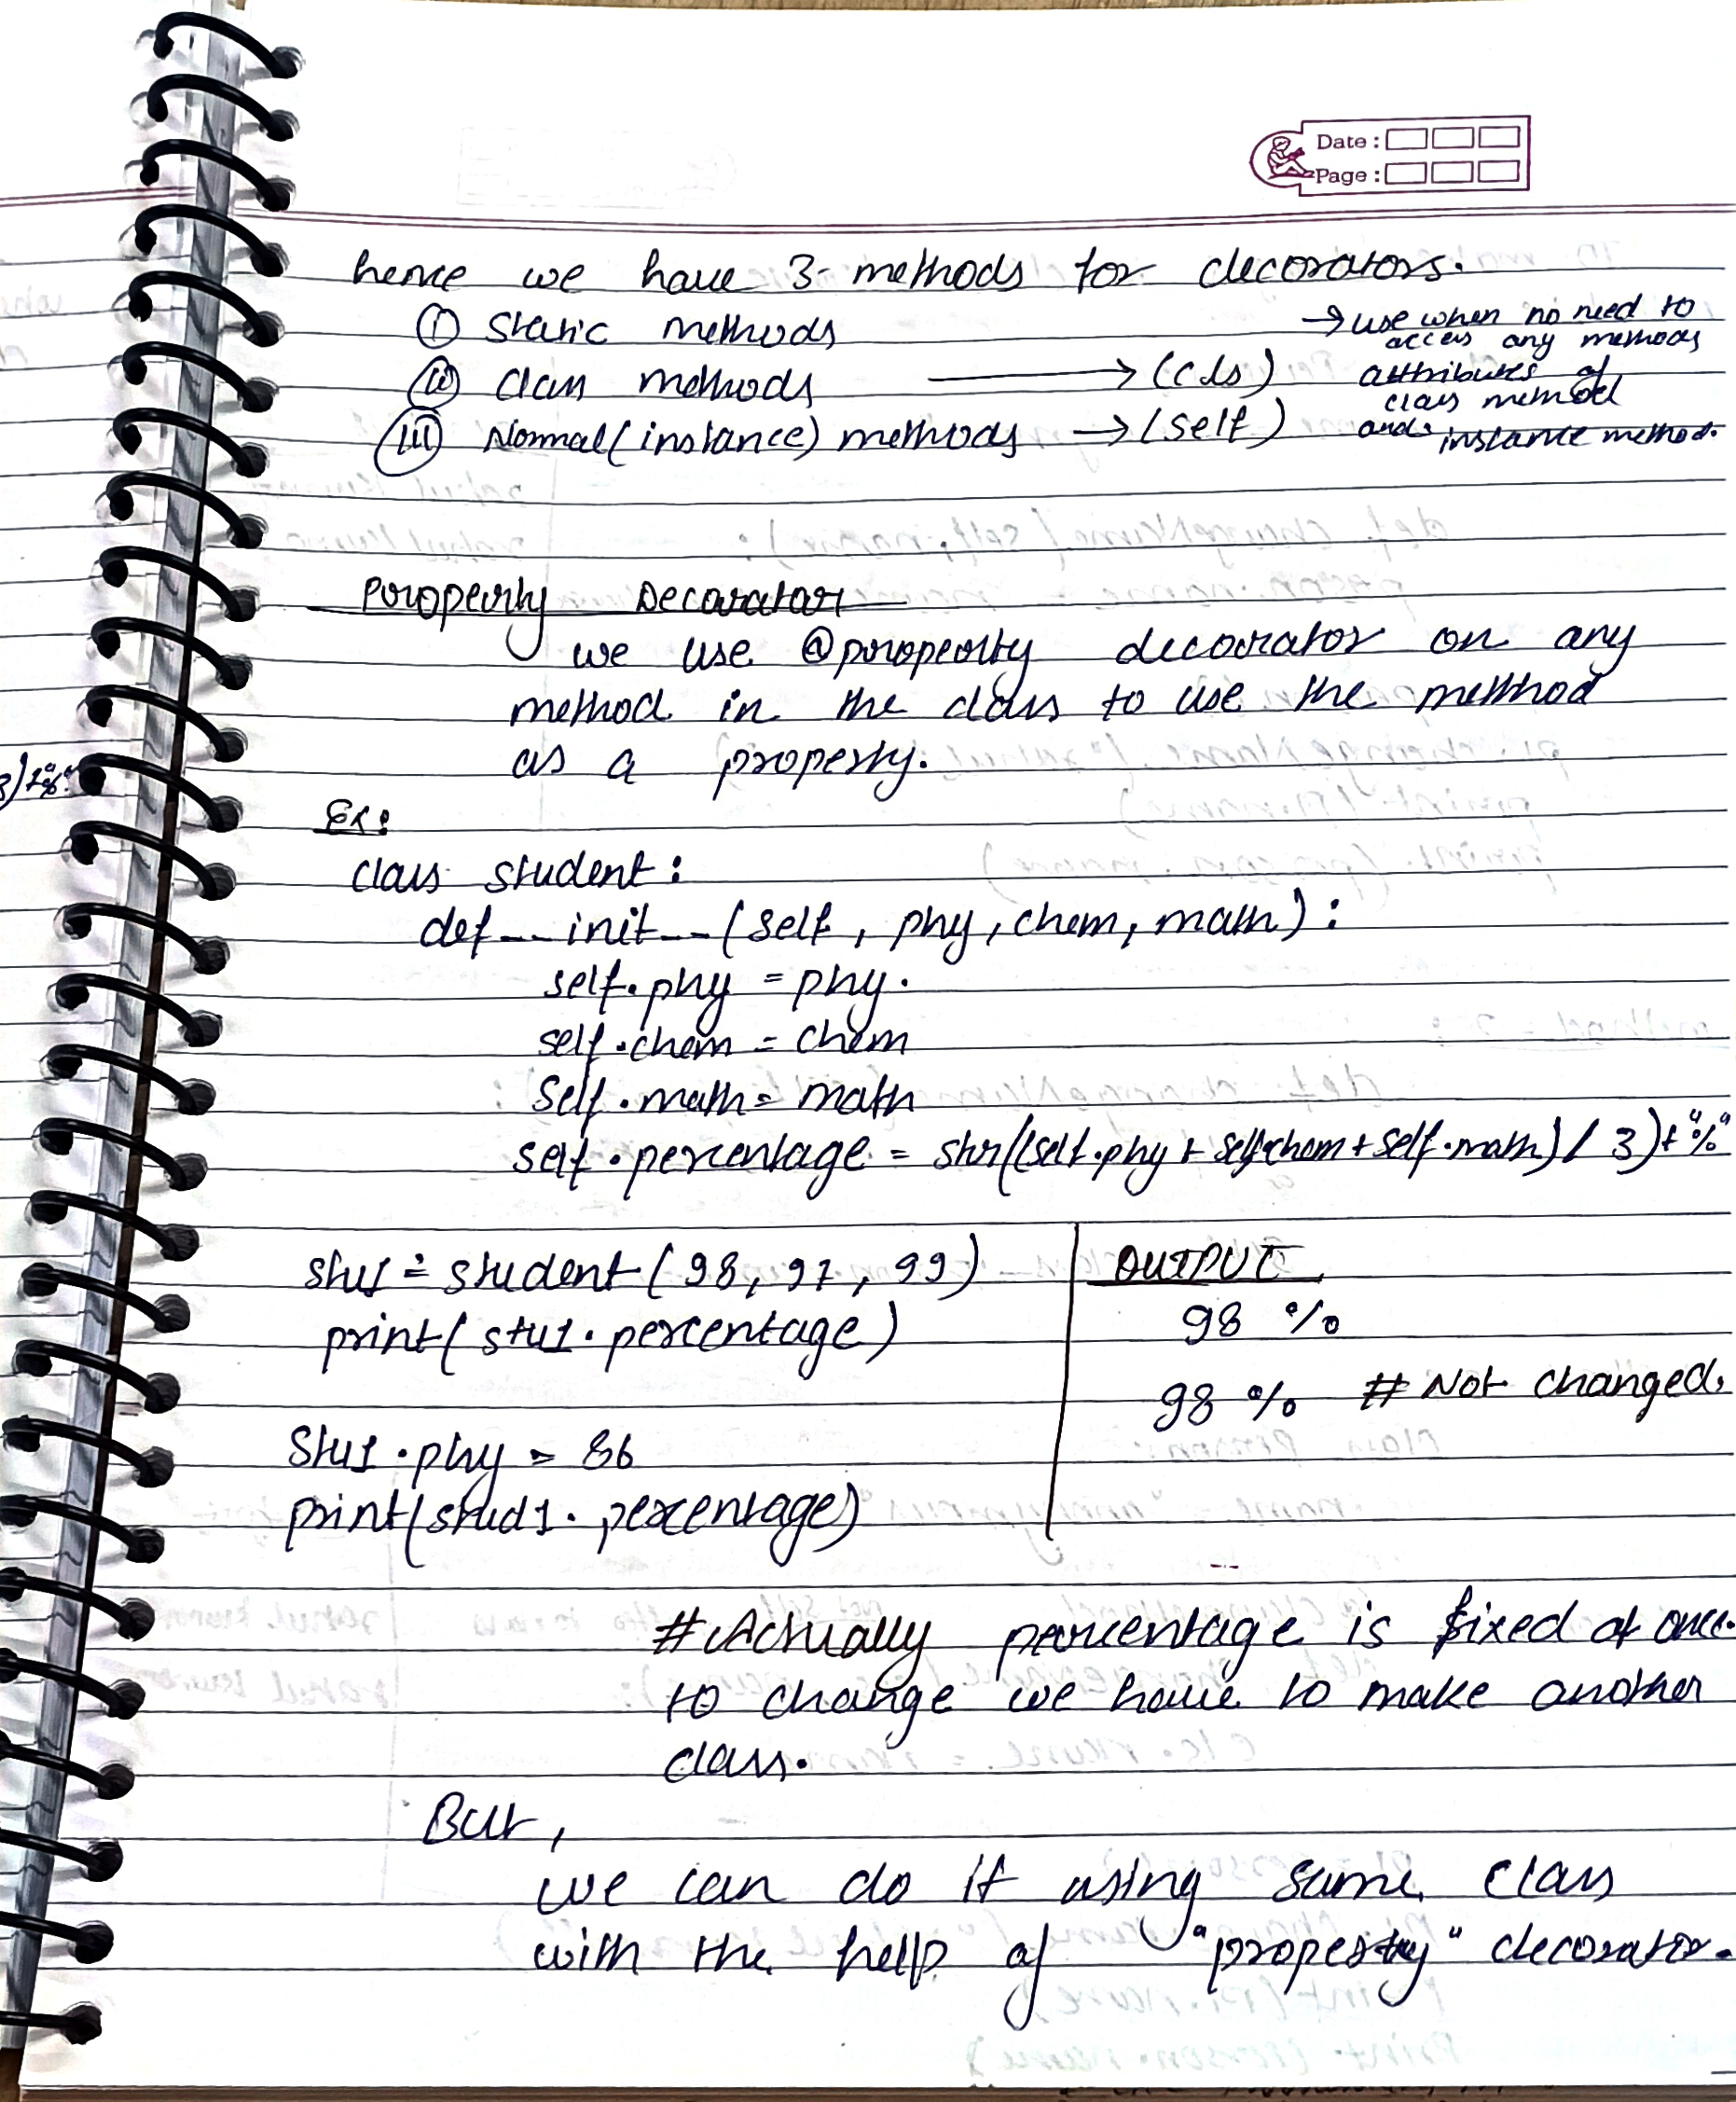 Date :
Page :
hence we have 3 methods for decorators.
(i) Static methods → use when no need to access any methods
(ii) Class methods → (cls) attributes of class method
(iii) Normal (instance) methods → (self) and instance method.
Property Decorator
we use @property decorator on any
method in the class to use the method
as a property.
Ex:
class student:
def __init__(self, phy, chem, math):
self.phy = phy.
self.chem = chem
self.math = math
self.percentage = str((self.phy + self.chem + self.math) / 3) + "%"
stu1 = student(98, 97, 99)
print(stu1.percentage)
OUTPUT
98 %
98 % # Not changed.
Stu1.phy = 86
print(stud1.percentage)
# Actually percentage is fixed at once.
to change we have to make another
class.
But,
we can do it using same class
with the help of "property" decorator.